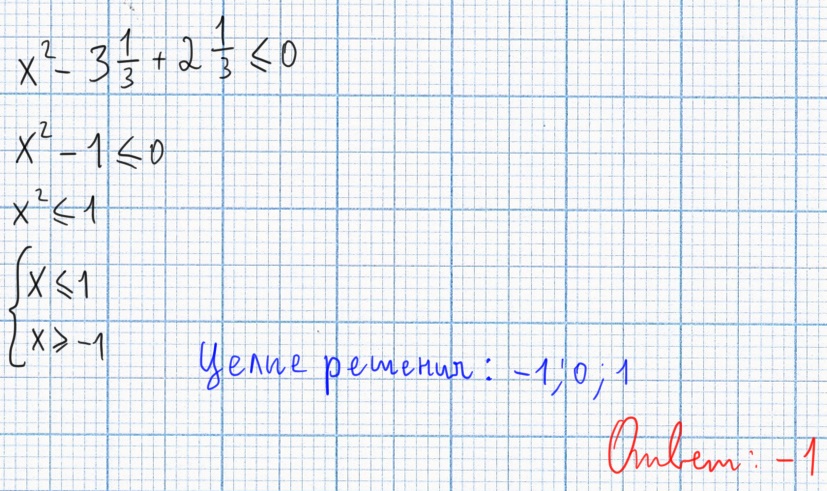 x² - 3 1/3 + 2 1/3 ≤ 0
x² - 1 ≤ 0
x² ≤ 1
{ x ≤ 1
x ≥ -1
Целые решения: -1; 0; 1
Ответ: -1